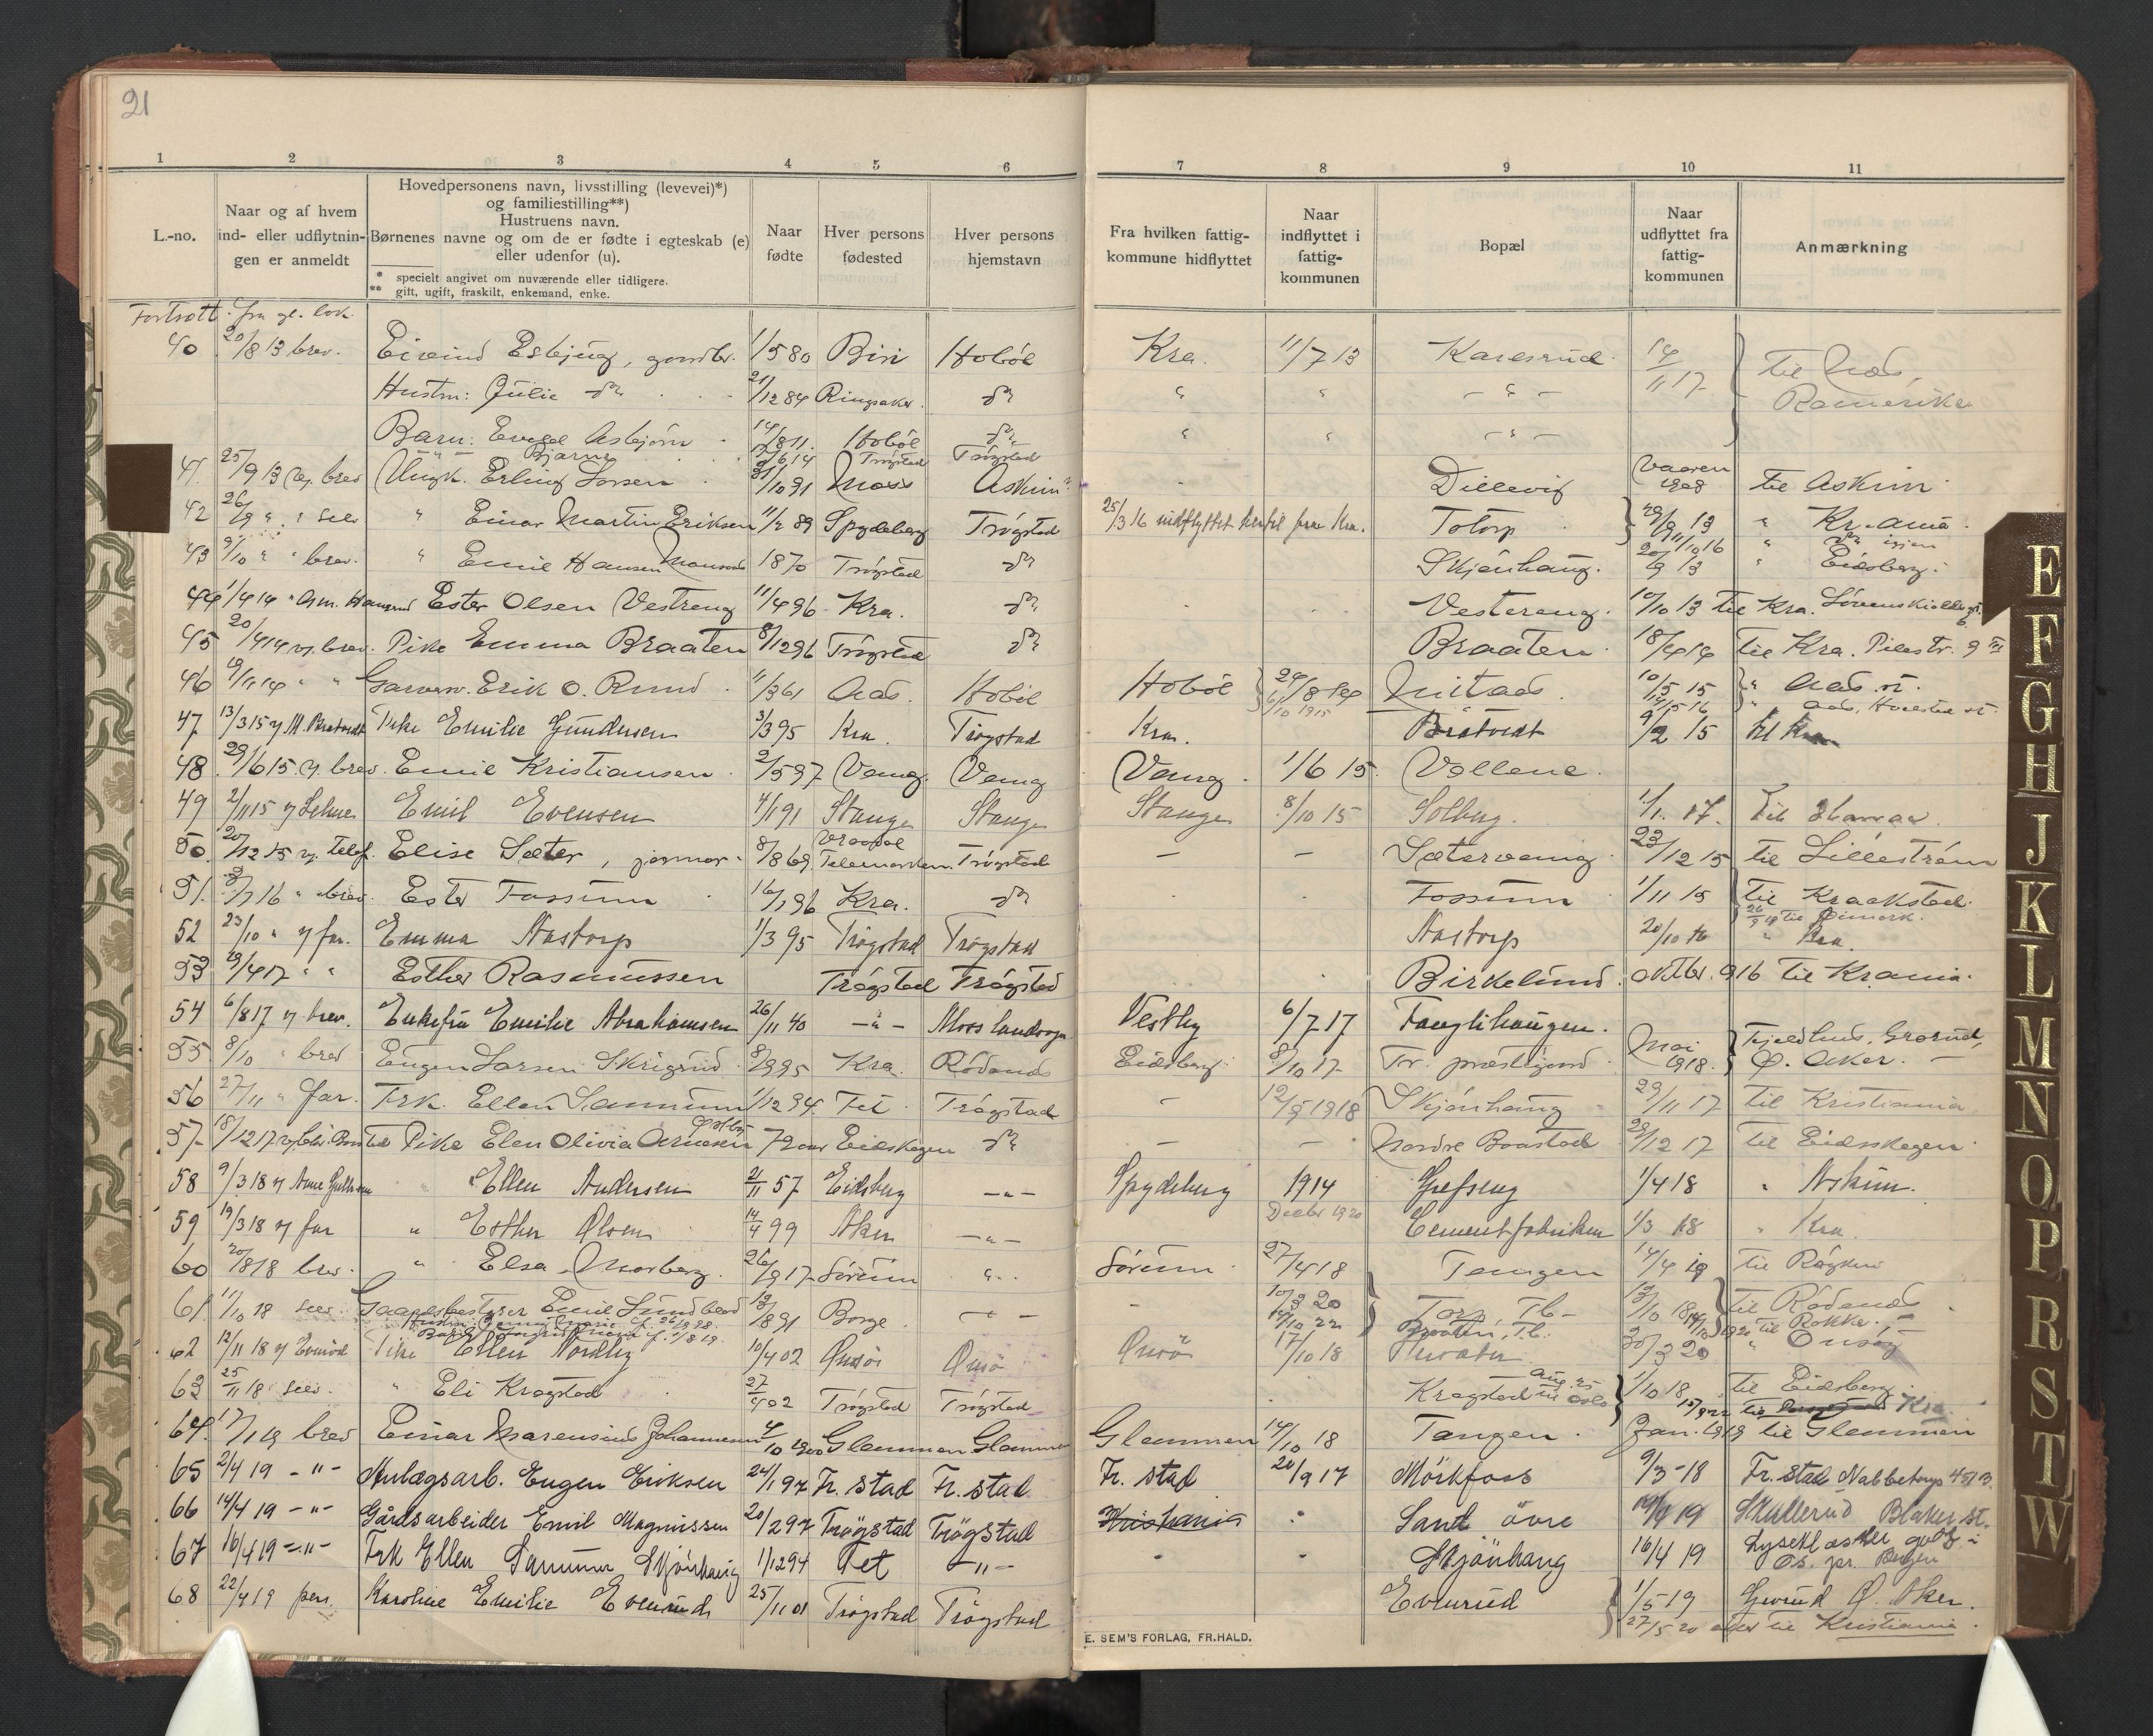 21
1 2 3 4 5 6 7 8 9 10 11
L.-no.
Naar og af hvem ind- eller udflytnin-gen er anmeldt
Hovedpersonens navn, livsstilling (levevei)*)
og familiestilling**)
Hustruens navn.
Børnenes navne og om de er fødte i egteskab (e)
eller udenfor (u).
* specielt angivet om nuværende eller tidligere.
** gift, ugift, fraskilt, enkemand, enke.
Naar fødte
Hver persons fødested
Hver persons hjemstavn
Fra hvilken fattig-kommune hidflyttet
Naar indflyttet i fattig-kommunen
Bopæl
Naar udflyttet fra fattig-kommunen
Anmærkning
Fortsatt fra gl. bok.
40 20/8 13 brev. Eivind Esbjug, gaardbr. 1/5 80 Biri Hobøl Kra. 11/7 13 Karlsrud 14/11 17 til Næs,
Hustru: Julie do 21/12 84 Ringsaker do " " - " - Romerike
Barn: Asbjørn Hobøl do " " - " -
- " - Bjarne Trøgstad Trøgstad
41 25/9 13 brev Ungk. Erling Larsen 31/10 91 Moss Askim Dillevig Vaaren 1908 til Askim
42 26/9 " " selv " Einar Martin Eriksen 11/2 89 Spydeberg Trøgstad 25/3 16 indflyttet hertil fra Kra. Totorp 29/9 13 " Kr.ania
11/10 16 " do igjen
43 9/10 " " brev. " Emil Hansen 1870 Trøgstad do Skjønhaug 20/9 13 " Eidsberg
44 1/4 14 Ester Olsen Vestreng 11/4 96 Kra. do Vestereng 10/10 13 til Kra.
45 20/4 14 brev. Pike Emma Braaten 8/12 96 Trøgstad do Braaten 18/4 14 til Kra. Pilestr. 9 III
46 19/11 14 " " Garverv. Erik O. Rund 11/3 61 Aas Hobøl Hobøl 24/8 14 Mitads 10/5 15 " Aas st.
6/10 1915
47 13/3 15 M. Bratvedt Pike Emilie Gundersen 3/3 95 Kra. Trøgstad Kra. Bratvedt 9/2 15 til Kra
48 29/6 15 brev. Emil Kristiansen 2/5 97 Vang Vang Vang 1/6 15 Vollene
49 2/11 15 Emil Evensen 4/1 91 Stange Stange Stange 8/10 15 Solberg 1/1 17 til Hamar
50 20/12 15 telef. Elise Sæter, jormor 8/8 69 Vraadal Telemarken Trøgstad — — Sætervang 23/12 15 til Lillestrøm
51 3/7 16 " brev Ester Fossum 16/1 96 Kra. do Fossum 1/11 15 til Kraakstad
52 23/10 " far. Emma Nastorp 1/3 95 Trøgstad Trøgstad Nastorp 20/10 16 " Kra.
53 19/4 17 " " Esther Rasmussen Trøgstad Trøgstad Birkelund Oktbr. 916 til Krania
54 6/8 17 brev. Enkefru Emilie Abrahamsen 26/11 40 — " — Moss landsogn Vestby 6/7 17 Fuglihaugen
55 8/10 " brev Eugen Larsen Skrigrud 8/9 95 Kra. Rødenes Eidsberg 8/10 17 Tr. præstegaard Mai 1918 Fjeldhus, Grorud,
Ø. Aker. —
56 27/11 " far. Frk. Ellen Samum 1/12 94 Fet Trøgstad - 12/5 1918 Skjønhaug 29/11 17 til Kristiania
57 18/12 17 Pike Elen Olivia Arnesen 72 aar Eidskogen do — — Nordre Baastad 28/12 17 til Eidsskogen
58 9/3 18 " Ellen Andersen 2/11 57 Eidsberg — " — Spydeberg 1914 Grefseng 1/4 18 " Askim.
59 19/3 18 far " Esther Olsen 14/4 99 Aker — " — Decbr 1920 Cementfabriken 1/3 18 " Kra
60 20/8 18 brev. " Elsa Norberg 26/9 17 Sørum " Sørum 27/4 18 Tangen 14/4 19 til Røyken
61 11/10 18 selv Gaardsbestyrer Emil Sundblad 13/8 91 Borge — " — - 10/3 20 Torp Tb — 13/10 18 til Rødenes
14/10 22 Braaten, Tb. 1920 til Rokke
62 12/11 18 Pike Ellen Nordby 10/4 02 Onsø Onsø Onsø 17/10 18 20/3 20 " Onsøy
63 25/11 18 selv. " Eli Kragstad 27/4 02 Trøgstad Trøgstad Kragstad Aug. 25 til Oslo 1/10 18 til Eidsberg
til Kra.
64 17/1 19 brev Einar Marensius Johannesen 4/10 1900 Glemmen Glemmen Glemmen 14/10 18 Tangen Jan. 1919 til Glemmen
65 2/4 19 - " - Anlægsarb. Eugen Eriksen 24/1 97 Fr. stad Fr. stad Fr. stad 20/9 17 Mörkfoss 9/3-18 Fr. stad Nabbetorp
66 14/4 19 - " - Gårdsarbeider Emil Magnussen 20/2 97 Trögstad Trögstad Kristiania " Sand övre 19/4 19 Skullerud Blaker st.
67 16/4 19 - " - Frk Ellen Samum Skjönhaug 1/12 94 Fet - " - Skjönhaug 16/4 19 Lyseklaster gods i
Os. pr. Bergen
68 22/4 19 pers. Karoline Emilie Evenrud 25/11 01 Trøgstad Trøgstad Evenrud 1/5-19 Grorud Ø. Aker.
27/5 20 atter til Kristiania.
E. SEM'S FORLAG, FR.HALD.
E
F
G
H
J
K
L
M
N
O
P
R
S
T
W